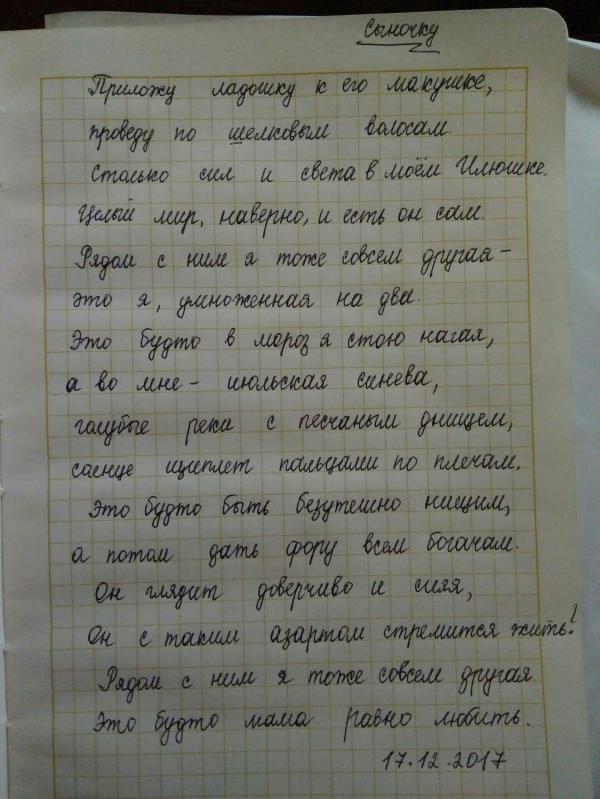 Сыночку
Приложу ладошку к его макушке,
проведу по шелковым волосам.
Столько сил и света в моём Илюшке.
Целый мир, наверно, и есть он сам.
Рядом с ним я тоже совсем другая –
это я, умноженная на два.
Это будто в мороз я стою нагая,
а во мне – июльская синева,
голубые реки с песчаным днищем,
солнце щиплет пальцами по плечам.
Это будто быть безутешно нищим,
а потом дать фору всем богачам.
Он глядит доверчиво и сияя,
Он с таким азартом стремится жить!
Рядом с ним я тоже совсем другая
Это будто мама равно любить.
17.12.2017